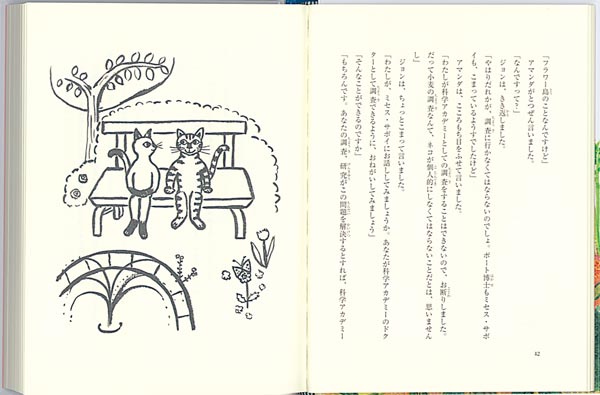 「フラワー島のことなんですけど」
アマンダがとつぜん言いました。
「なんですって?」
ジョンは、きき返しました。
「やはりだれかが、調査に行かなくてはならないのでしょ。ボート博士もミセス・サボ
イも、こまっているようすでしたけど」
アマンダは、こころもち目をふせて言いました。
「わたしが科学アカデミーとしての調査をすることはできないので、お断りしました。
だって小麦の調査なんて、ネコが個人的にしなくてはならないことだとは、思いません
し」
ジョンは、ちょっとこまって言いました。
「わたしが、ミセス・サボイにお話ししてみましょうか。あなたが科学アカデミーのドク
ターとして調査できるように、おねがいしてみましょう」
「そんなことができるのですか」
「もちろんです。あなたの調査、研究がこの問題を解決するとすれば、科学アカデミー
82